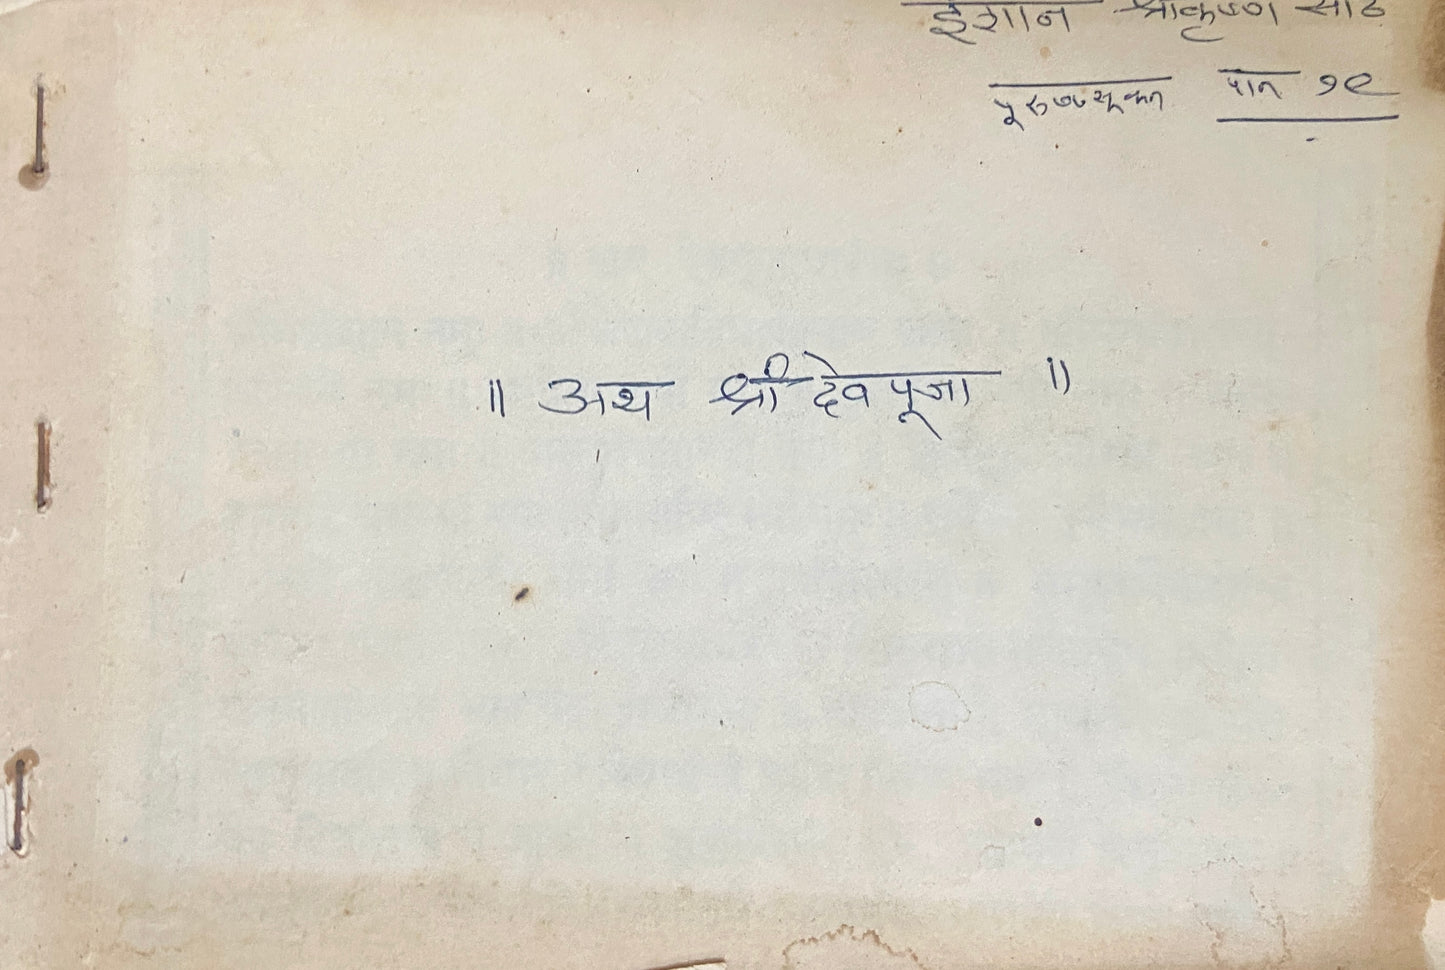 ईशान श्रीकृष्ण साठे
पुरुषसूक्त पान १९
॥ अथ श्री देवपूजा ॥